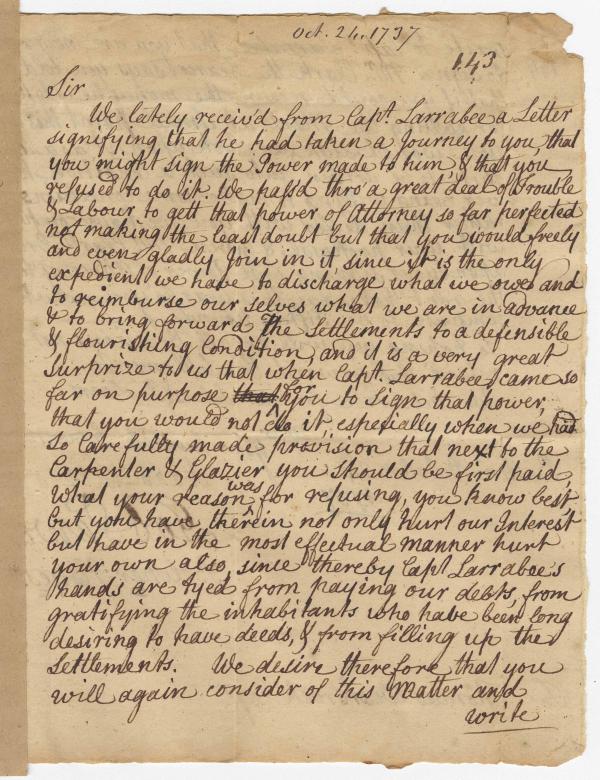 Oct. 24. 1737
143
Sir
We lately receiv'd from Capt. Larrabee a Letter
signifying that he had taken a Journey to you, that
you might sign the Power made to him & that you
refused to do it. We pass'd thro' a great deal of Trouble
& Labour to gett that power of Attorney so far perfected
not making the least doubt but that you would freely
and even gladly Join in it, since it is the only
expedient we have to discharge what we owe and
to reimburse our selves what we are in advance
& to bring forward The Settlements to a defensible
& flourishing Condition, and it is a very great
Surprize to us that when Capt. Larrabee came so
far on purpose that for you to sign that power,
that you would not do it especially when we had
so Carefully made provision that next to the
Carpenter & Glazier you should be first paid,
What your reason was for refusing, you know best,
but you have therein not only hurt our Interest
but have in the most effectual manner hurt
your own also, since thereby Capt Larrabee's
hands are tyed from paying our debts, from
gratifying the inhabitants who have been long
desiring to have deeds, & from filling up the
Settlements. We desire therefore that you
will again consider of this Matter and
write